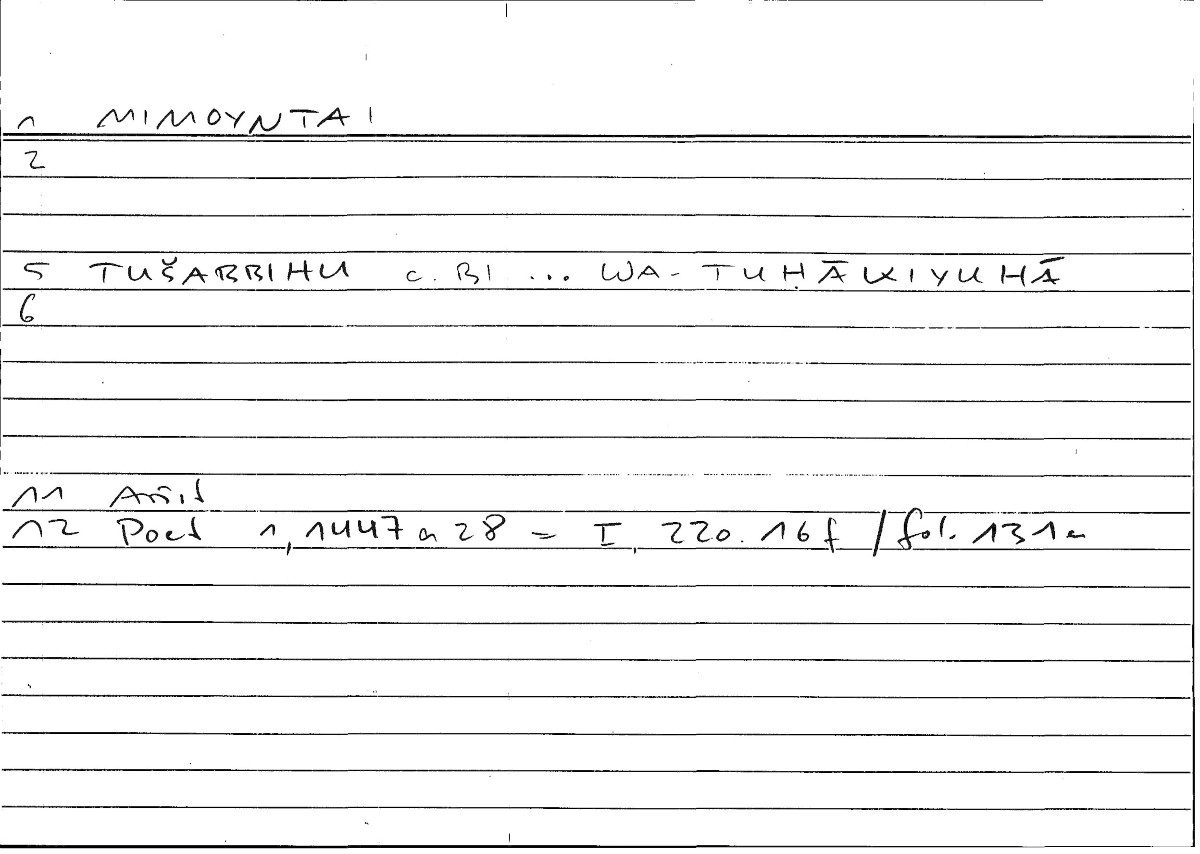 1 ΜΙΜΟΥΝΤΑΙ
2
5 TUŠABBIHU c. BI ... WA-TUḤĀKIYUHĀ
6
11 Arist
12 Poet 1,1447a28 = I, 220.16f / fol. 131a